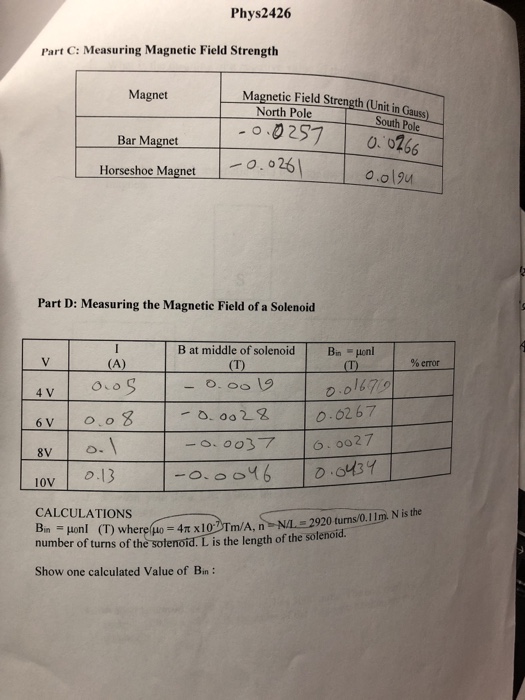 Phys2426
Part C: Measuring Magnetic Field Strength
Magnet
Magnetic Field Strength (Unit in Gauss)
North Pole
South Pole
Bar Magnet
-0.0257
0.0266
Horseshoe Magnet
-0.0261
0.0194
Part D: Measuring the Magnetic Field of a Solenoid
V
I
(A)
B at middle of solenoid
(T)
Bin = μonI
(T)
% error
4 V
0.05
-0.0019
6 V
0.08
-0.0028
0.0267
8V
0.1
-0.0037
0.0027
10V
0.13
-0.0046
0.0434
CALCULATIONS
Bin = μonI (T) where μo = 4π x10⁻⁷ Tm/A, n = N/L = 2920 turns/0.11m. N is the
number of turns of the solenoid. L is the length of the solenoid.
Show one calculated Value of Bin :